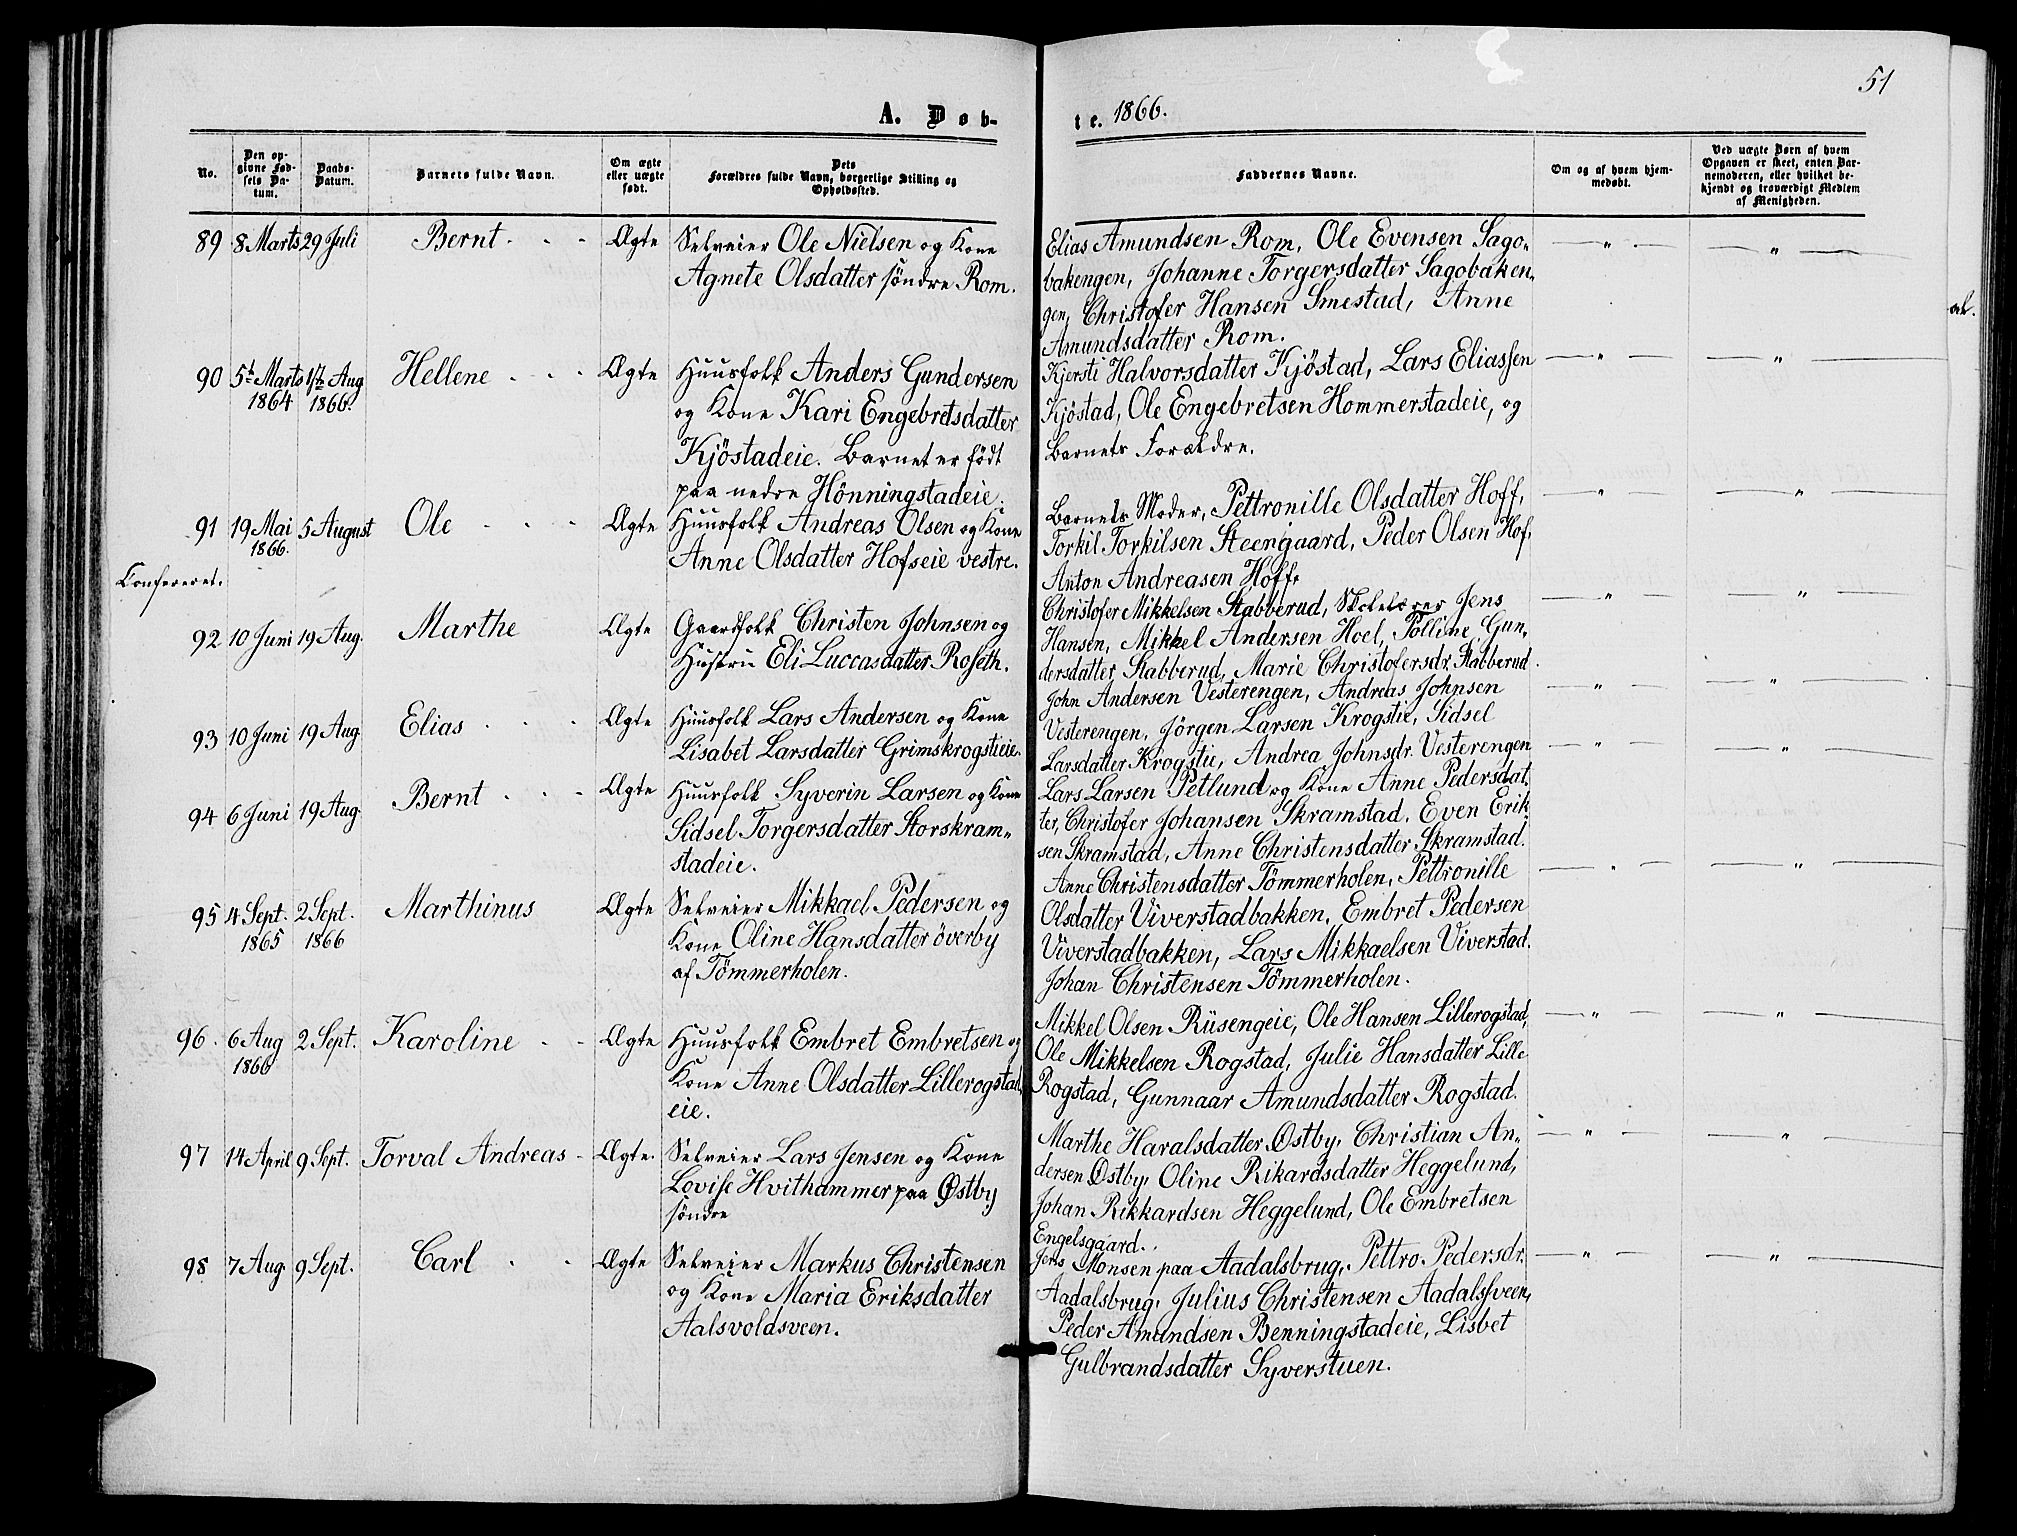 51
A. Døb-
te. 1866.
No.
Den op-
givne Fød-
sels Da-
tum.
Daabs-
Datum.
Barnets fulde Navn.
Om ægte
eller uægte
født.
Dets
Forældres fulde Navn, borgerlige Stilling og
Opholdssted.
Faddernes Navne.
Om og af hvem hjem-
medøbt.
Ved uægte Børn af hvem
Opgaven er skeet, enten Bar-
nemoderen, eller hvilket be-
kjendt og troværdigt Medlem
af Menigheden.
89 8 Marts 29 Juli Bernt - - - Ægte
Selveier Ole Nielsen og Kone
Agnete Olsdatter söndre Rom.
Elias Amundsen Rom, Ole Evensen Sago-
bakengen, Johanne Torgersdatter Sagobaken,
gen, Christofer Hansen Smestad, Anne
Amundsdatter Rom.
— " — — " —
90 5te Marts 1864 17de Aug 1866. Hellene - - - Ægte
Huusfolk Anders Gundersen
og Kone Kari Engebretsdatter
Kjöstadeie. Barnet er född
paa nedre Hönningstadeie.
Kjersti Halvorsdatter Kjöstad, Lars Eliassen
Kjöstad, Ole Engebretsen Hommerstadeie, og
Barnets Forældre.
— " — — " —
91 19 Mai 1866. 5 August Ole - - - Ægte
Huusfolk Andreas Olsen og Kone
Anne Olsdatter Hofseie vestre.
Barnets Moder, Pettronille Olsdatter Hoff,
Torkil Torkilsen Steengaard, Peder Olsen Hof,
Anton Andreasen Hoff.
— " — — " —
Confereret.
92 10 Juni 19 Aug. Marthe Ægte
Gaardfolk Christen Johnsen og
Hustrue Eli Luccasdatter Roseth.
Christofer Mikkelsen Stabberud, Skolelærer Jens
Hansen, Mikkel Andersen Hoel, Polline Gun-
dersdatter Stabberud, Marie Christofersdr. Stabberud.
— " — — " —
93 10 Juni 19 Aug Elias - - - Ægte
Huusfolk Lars Andersen og Kone
Lisabet Larsdatter Grimskrogstieie.
John Andersen Vesterengen, Andreas Johnsen
Vesterengen, Jörgen Larsen Krogstie, Sidsel
Larsdatter Krogstie, Andrea Johnsdr. Vesterengen
— " — — " —
94 6 Juni 19 Aug. Bernt - - - Ægte
Huusfolk Syverin Larsen og Kone
Sidsel Torgersdatter Storskram-
stadeie.
Lars Larsen Petlund og Kone Anne Pedersdat
ter, Christofer Johansen Skramstad. Even Erik
sen Skramstad, Anne Christensdatter Skramstad.
— " — — " —
95 4 Sept. 1865 2 Sept. 1866 Marthinus Ægte
Selveier Mikkael Pedersen og
Kone Oline Hansdatter överby
af Tömmerholen.
Anne Christensdatter Tömmerholen, Pettronille
Olsdatter Viverstadbakken, Embret Pedersen
Viverstadbakken, Lars Mikkaelsen Viverstad.
Johan Christensen Tömmerholen.
— " — — " —
96. 6 Aug 1866 2 Sept. Karoline - - Ægte
Huusfolk Embret Embretsen og
Kone Anne Olsdatter Lillerogstad
eie.
Mikkel Olsen Rüsengeie, Ole Hansen Lillerogstad,
Ole Mikkelsen Rogstad, Julie Hansdatter Lille
Rogstad, Gunnaar Amundsdatter Rogstad.
— " — — " —
97 14 April 9 Sept. Torval Andreas - Ægte.
Selveier Lars Jensen og Kone
Lovise Hvithammer paa Østby
söndre
Marthe Haralsdatter Østby, Christian An-
dersen Østby, Oline Rikardsdatter Heggelund,
Johan Rikkardsen Heggelund, Ole Embretsen
Engelsgaard.
— " — — " —
98 7 Aug. 9 Sept. Carl - - Ægte
Selveier Markus Christensen
og Kone Maria Eriksdatter
Aalsvoldsveen.
Jens Monsen paa Aadalsbrug, Pettro. Pedersdr.
Aadalsbrug, Julius Christensen Aadalssveen,
Peder Amundsen Benningstadeie, Lisbet
Gulbrandsdatter Syverstuen.
— " — — " —